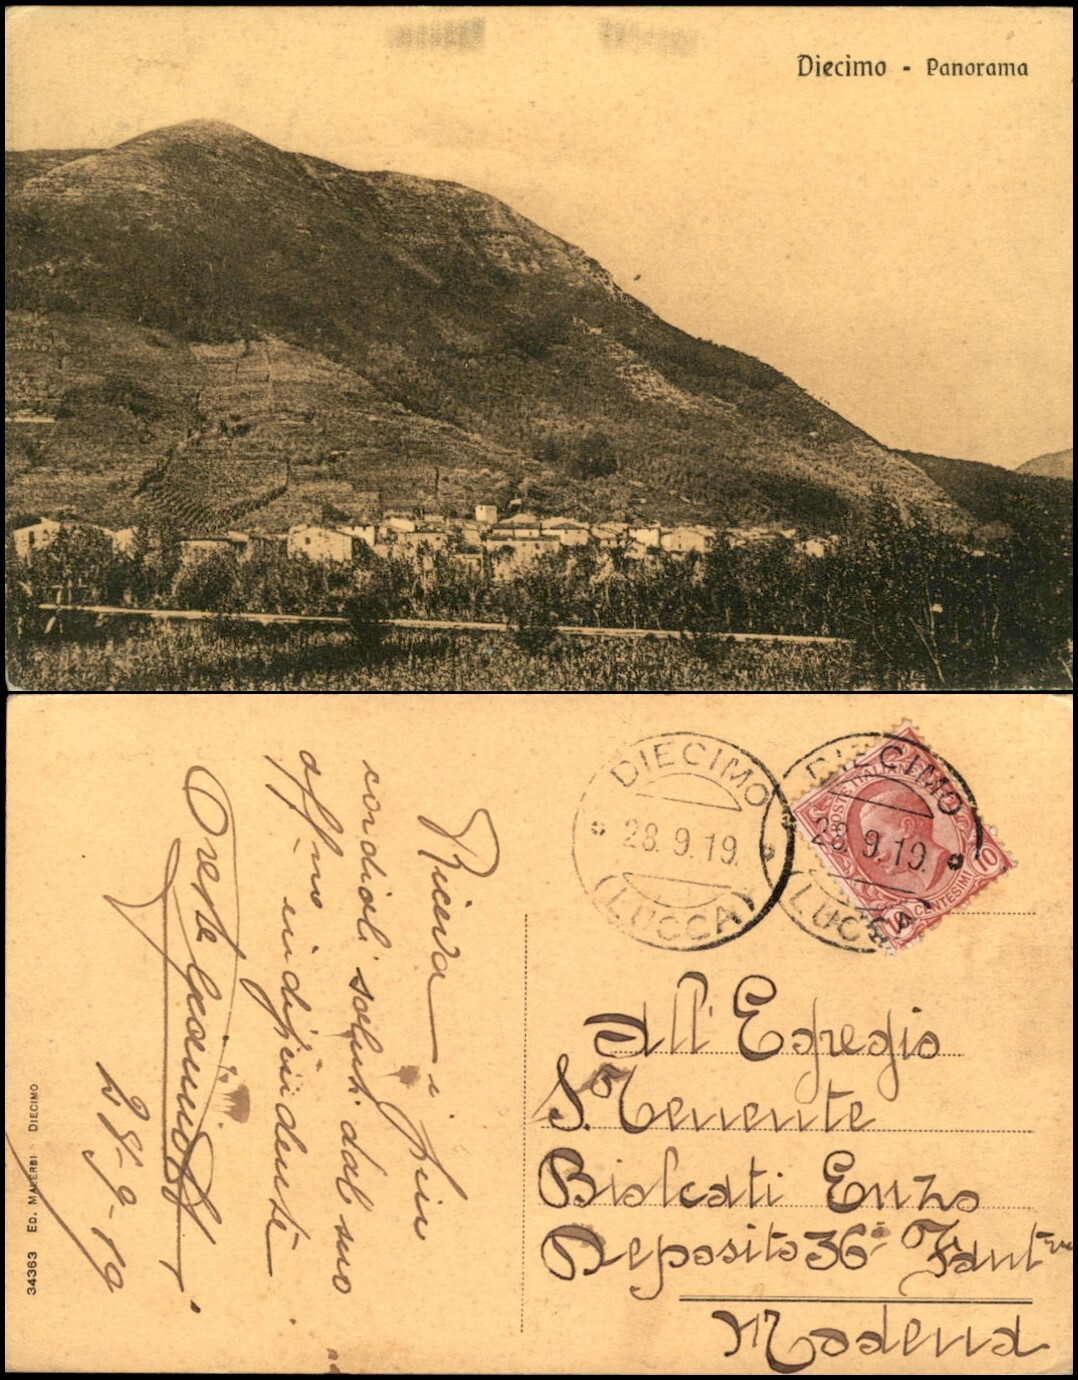 Diecimo - Panorama
DIECIMO
28.9.19.
(LUCCA)
DIECIMO
28.9.19.
(LUCCA)
POSTE ITALIANE
10
CENTESIMI
10
All' Egregio
S. Tenente
Biolcati Enzo
Deposito 36º Fant
Modena
Riceva i piu
cordiali saluti dal suo
aff/mo
Oreste
28-9-19
34363 ED. MALERBI DIECIMO